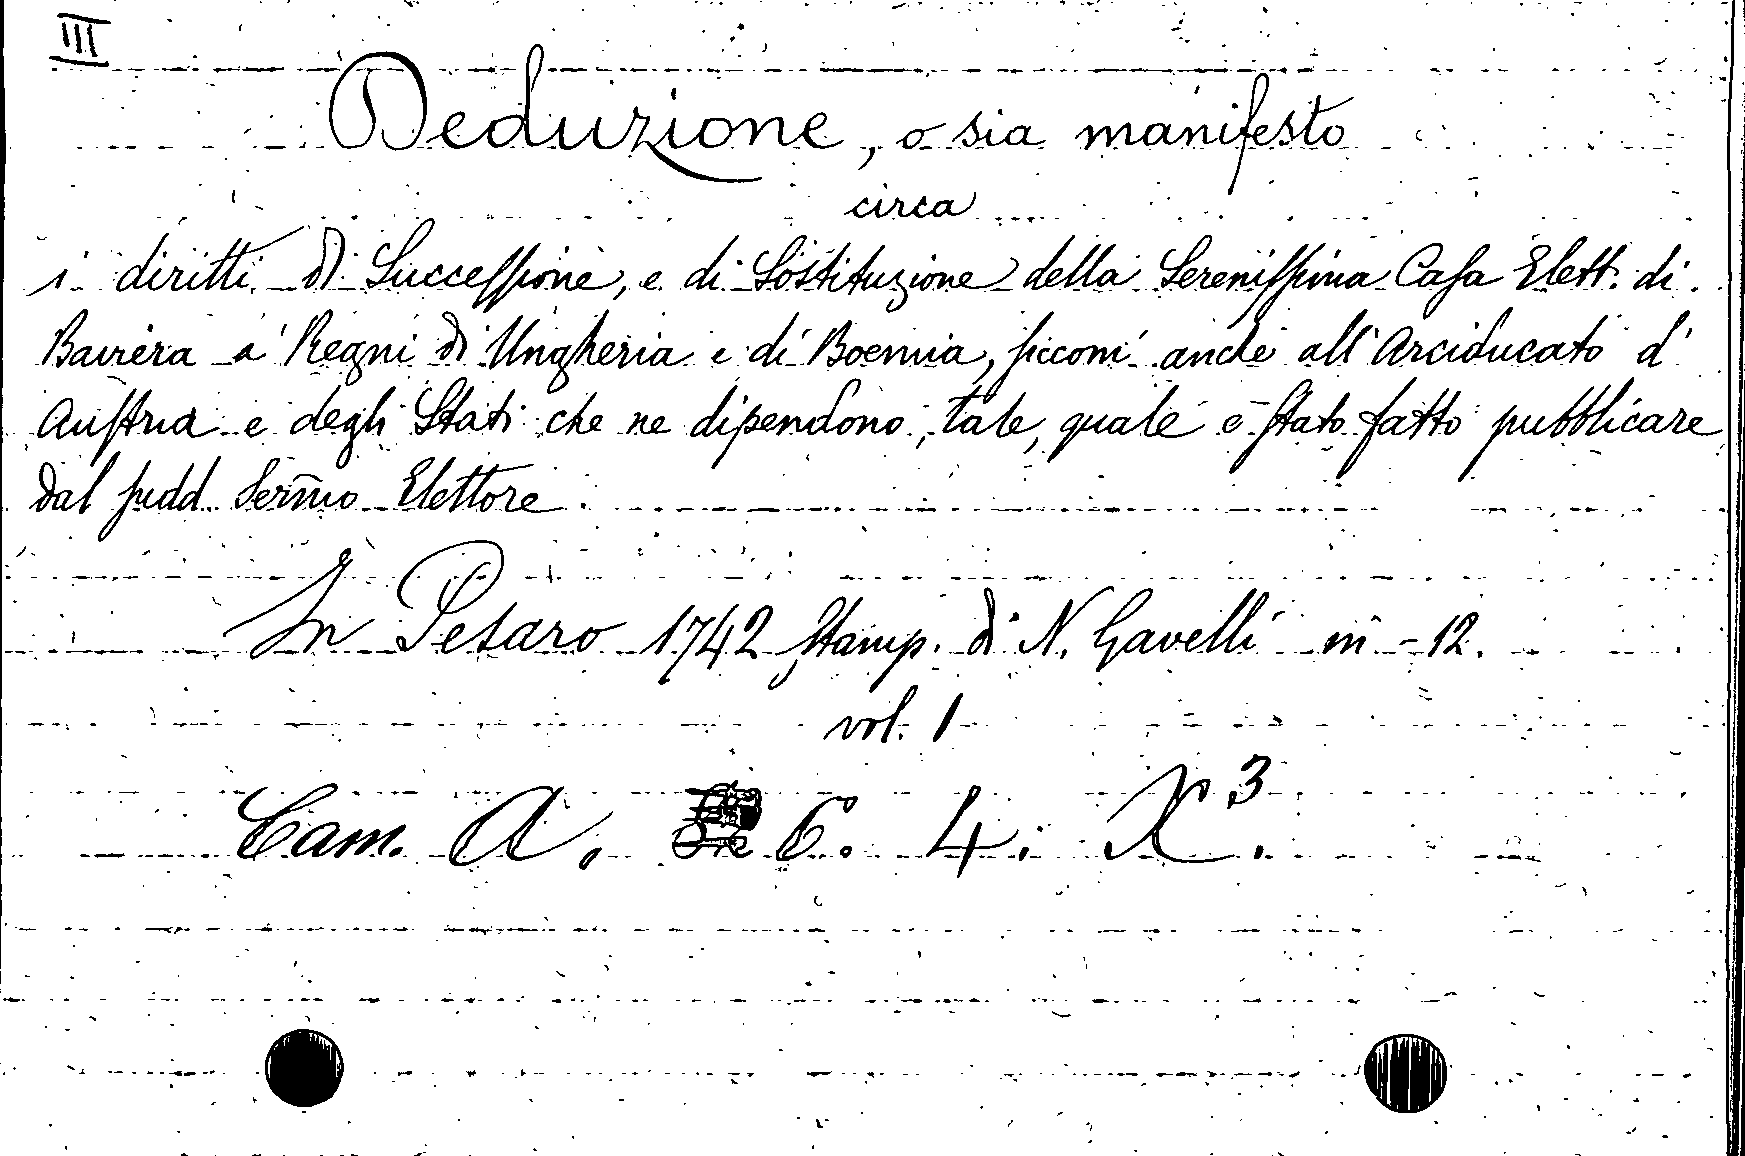 III
Deduzione, o sia manifesto
circa
i diritti di Succeſsione, e di Sostituzione della Sereniſsima Caſa Elett. di
Baviera a' Regni di Ungheria e di Boemia, ſiccomé anche all' Arciducato d'
Auſtria e degli Stati che ne dipendono, tale, quale è ſtato fatto pubblicare
dal ſudd. Serm̃o Elettore.
In Pesaro 1742 Stamp. di N. Gavelli in-12.
vol. 1
Cam. A. 6. 4. X³.